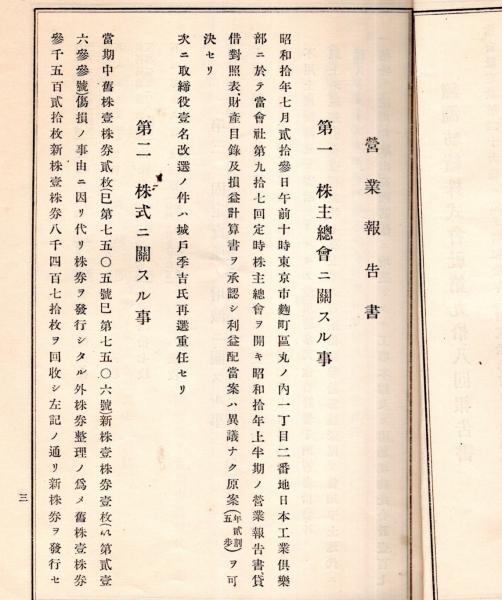 營業報告書
第一 株主總會ニ關スル事
昭和拾年七月貳拾參日午前十時東京市麴町區丸ノ內一丁目二番地日本工業俱樂
部ニ於テ當會社第九拾七回定時株主總會ヲ開キ昭和拾年上半期ノ營業報告書、貸
借對照表、財產目錄及損益計算書ヲ承認シ利益配當案ハ異議ナク原案(年貳割五步)ヲ可
決セリ
次ニ取締役壹名改選ノ件ハ城戶季吉氏再選重任セリ
第二 株式ニ關スル事
當期中舊株壹株券貳枚(巳第七五〇五號巳第七五〇六號)新株壹株券壹枚(い第貳壹
六參參號)傷損ノ事由ニ因リ代リ株券ヲ發行シタル外株券整理ノ爲メ舊株壹株券
參千五百貳拾枚新株壹株券八千四百七拾枚ヲ回收シ左記ノ通リ新株券ヲ發行セ
三